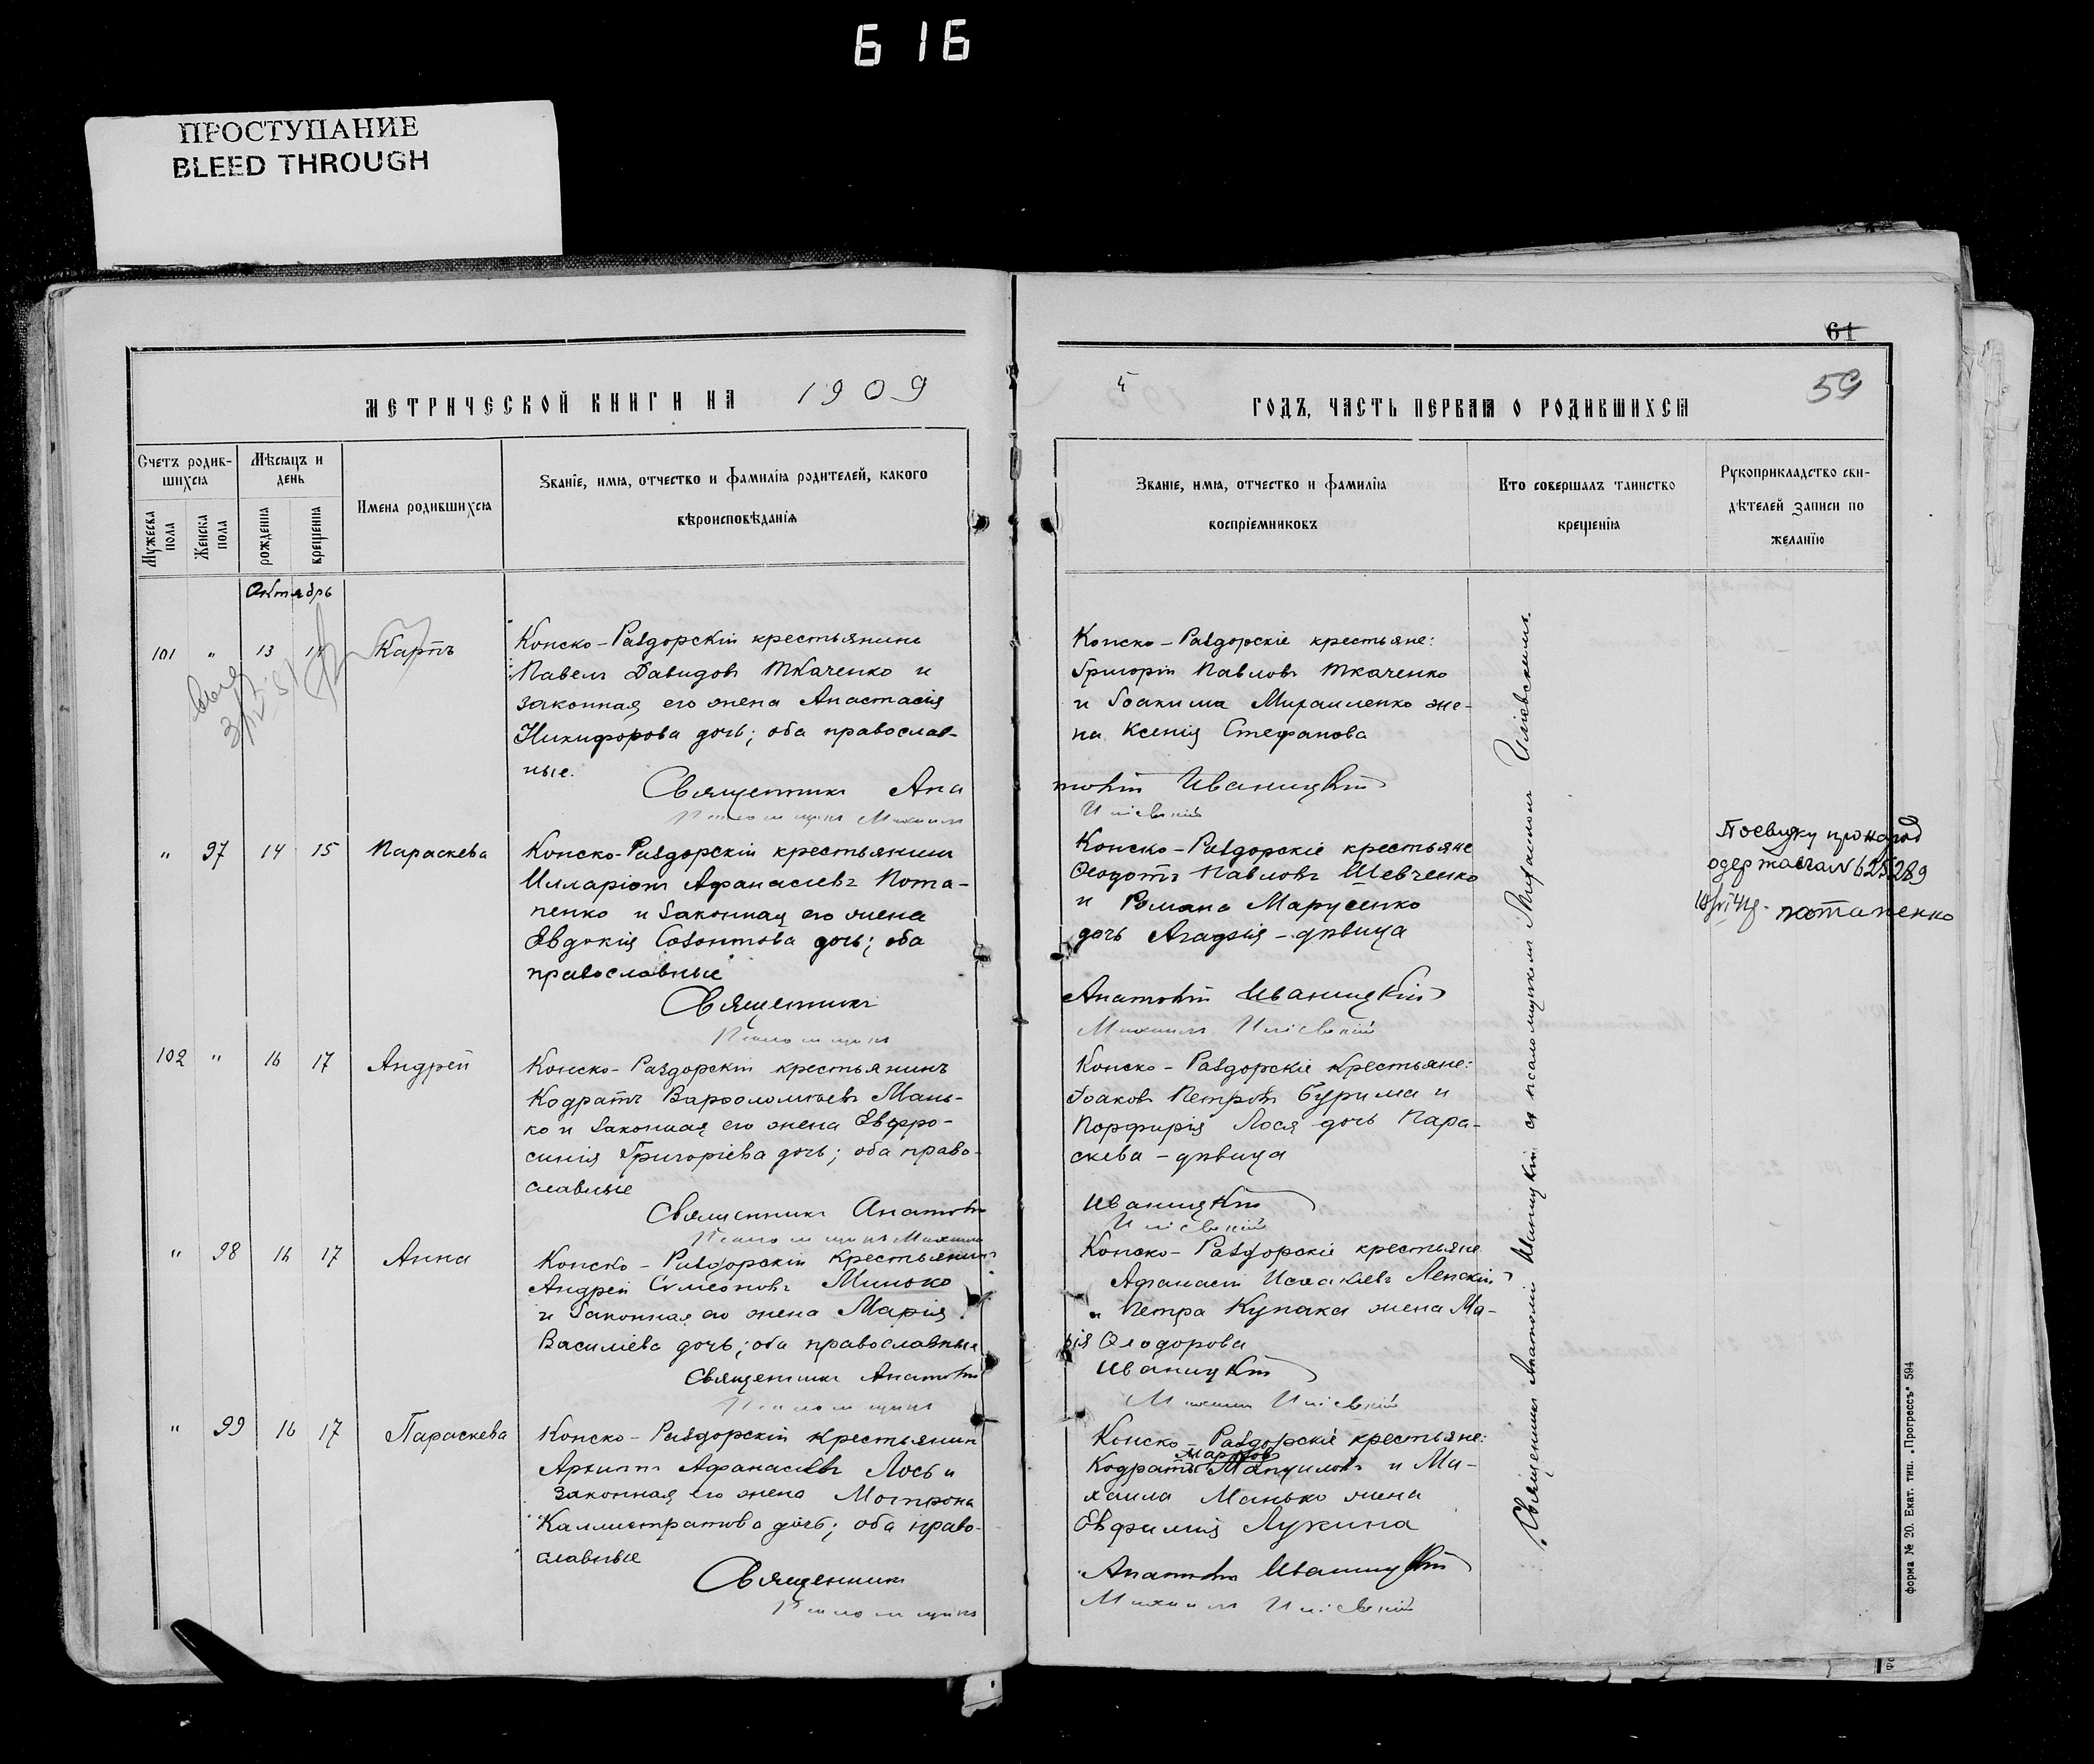 616
ПРОСТУПАНИЕ
BLEED THROUGH
61
МЕТРИЧЕСКОЙ КНИГИ НА 1909
59
ГОДЪ, ЧАСТЬ ПЕРВАЯ О РОДИВШИХСЯ
Счетъ родив-
шихся
Мужеска пола
Женска пола
Мѣсяцъ и
день
рожденія
крещенія
Имена родившихся
Званіе, имя, отчество и фамилія родителей, какого
вѣроисповѣданія
Званіе, имя, отчество и фамилія
воспріемниковъ
Кто совершалъ таинство
крещенія
Рукоприкладство сви-
дѣтелей записи по
желанію
Октябрь
101 " 13 14 Карпъ
Конско-Раздорскій крестьянинъ
Павелъ Давидовъ Ткаченко и
законная его жена Анастасія
Никифорова дочь; оба православ-
ные.
Священникъ Ана
Псаломщикъ Михаилъ
Конско-Раздорскіе крестьяне:
Григорій Павловъ Ткаченко
и Іоакима Михаиленко же-
на Ксенія Стефанова
толій Иваницкій
Иліевскій
" 97 14 15 Параскева
Конско-Раздорскій крестьянинъ
Илларіонъ Афанасіевъ Пота-
пенко и законная его жена
Евдокія Созонтова дочь; оба
православные
Священникъ
Псаломщикъ
Конско-Раздорскіе крестьяне
Ѳеодотъ Павловъ Шевченко
и Романа Марусенко
дочь Агафія - дѣвица
Анатолій Иваницкій
Михаилъ Иліевскій
потапенко
102 " 16 17 Андрей
Конско-Раздорскій крестьянинъ
Кодратъ Варѳоломѣевъ Мань-
ко и законная его жена Евфро-
синія Григоріева дочь; оба право-
славные
Священникъ Анатолій
Псаломщикъ Михаилъ
Конско-Раздорскіе крестьяне:
Іоаковъ Петровъ Бурима и
Порфирія Лося дочь Пара-
скева - дѣвица
Иваницкій
Иліевскій
" 98 16 17 Анна
Конско-Раздорскій крестьянинъ
Андрей Симеоновъ Минько
и законная его жена Марія
Василіева дочь; оба православные
Священникъ Анатолій
Псаломщикъ
Конско-Раздорскіе крестьяне
Афанасій Исаакіевъ Ленскій
и Петра Купака жена Ма-
рія Ѳеодорова
Иваницкій
Михаилъ Иліевскій
" 99 16 17 Параскева
Конско-Раздорскій крестьянинъ
Архиппъ Афанасіевъ Лось и
законная его жена Матрона
Каллистратова дочь; оба право-
славные
Священникъ
Псаломщикъ
Конско-Раздорскіе крестьяне:
Марков
Кодратъ и Ми-
хаила Манько жена
Евфимія Лукина
Анатолій Иваницкій
Михаилъ Иліевскій
Священникъ Анатолій Иваницкій съ псаломщикомъ Михаиломъ Иліевскимъ.
Форма № 20. Екат. тип. „Прогрессъ" 594